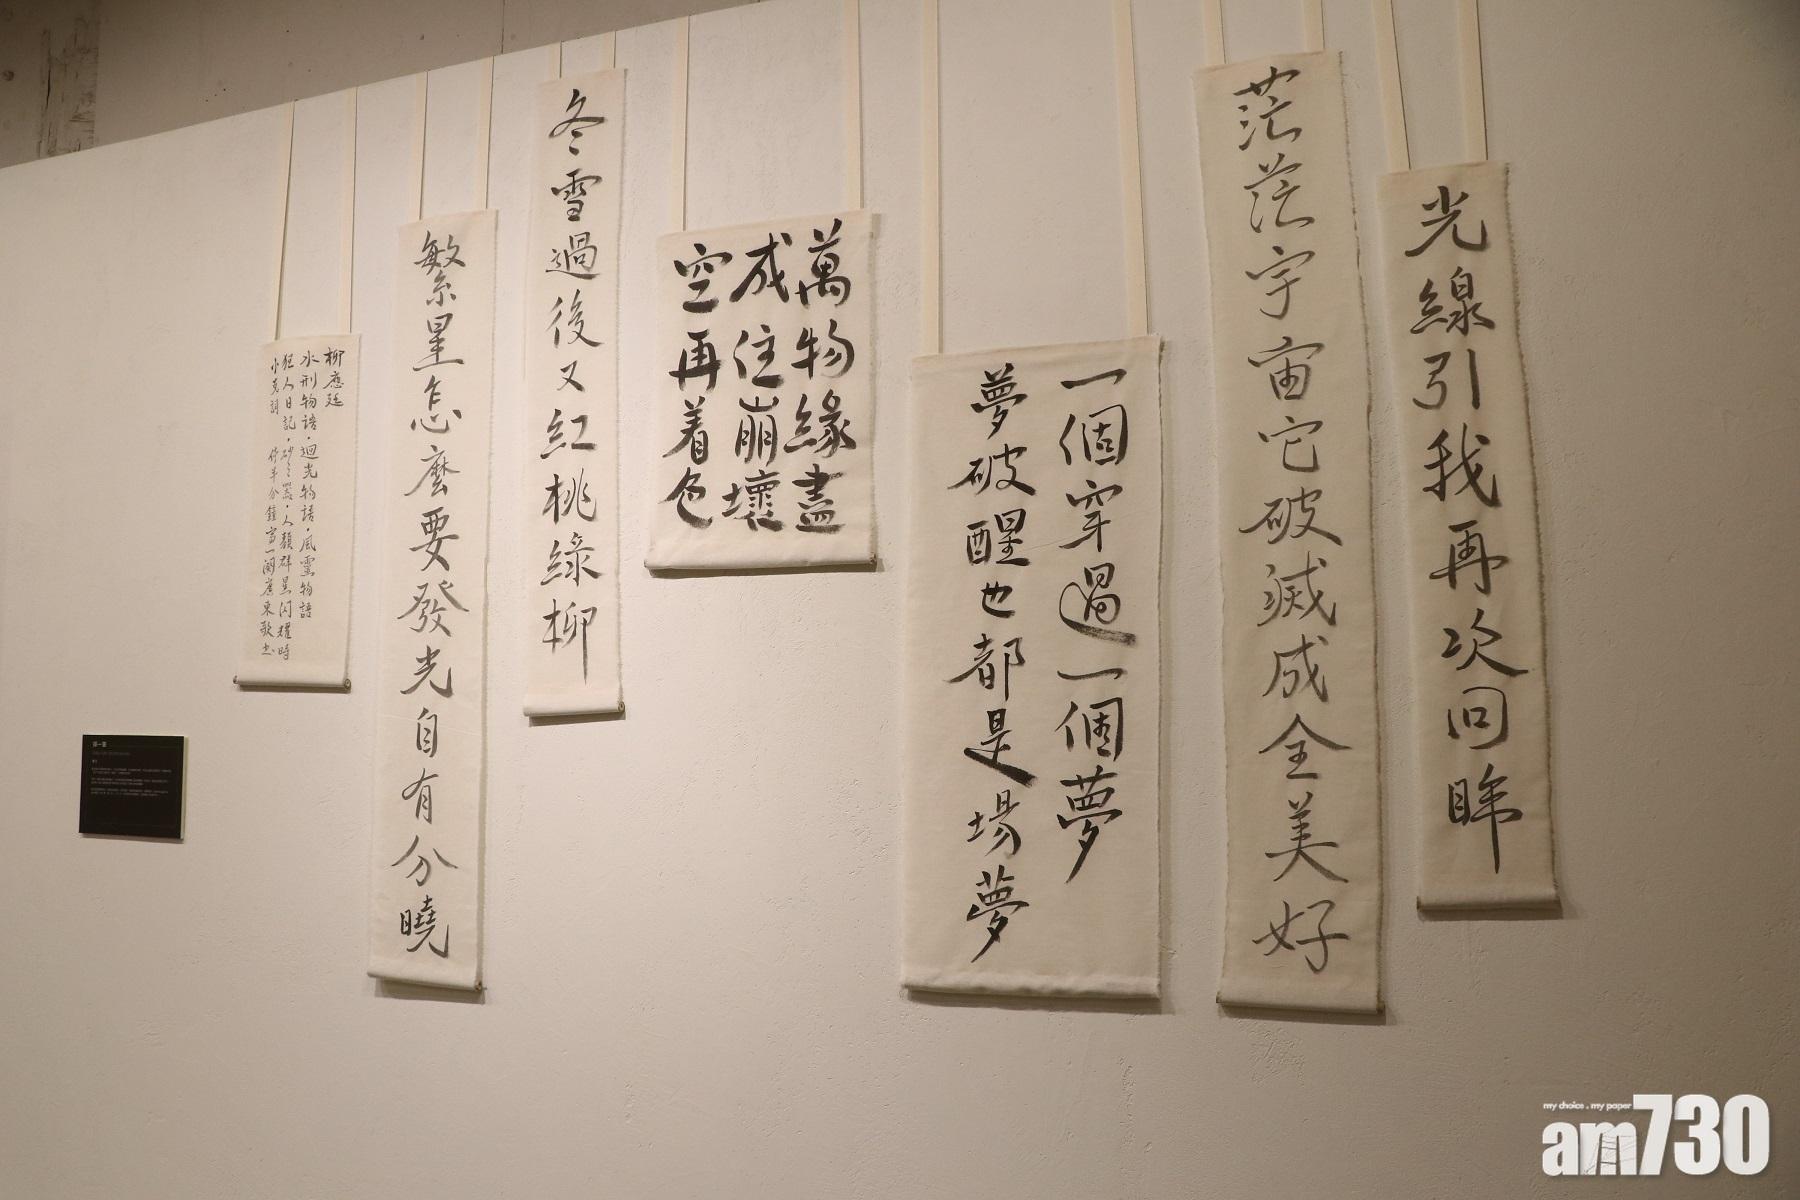 光線引我再次回眸
茫茫宇宙它破滅成全美好
一個穿過一個夢
夢破醒也都是場夢
萬物緣盡
成住崩壞
空再着色
冬雪過後又紅桃綠柳
繁星怎麼要發光自有分曉
柳應廷
水刑物語·迴光物語·風靈物語
狂人日記·砂之器·人類群星閃耀時
小克詞 停半分鐘寫一闋廣東歌
my choice . my paper
am730